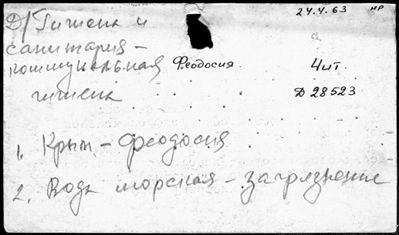 24.4.63 НР
Д/Гигиена и
санитария –
коммунальная Феодосия. Чит.
гигиена Д 28523
1. Крым – феодосия
2. Вода морская – загрязнение